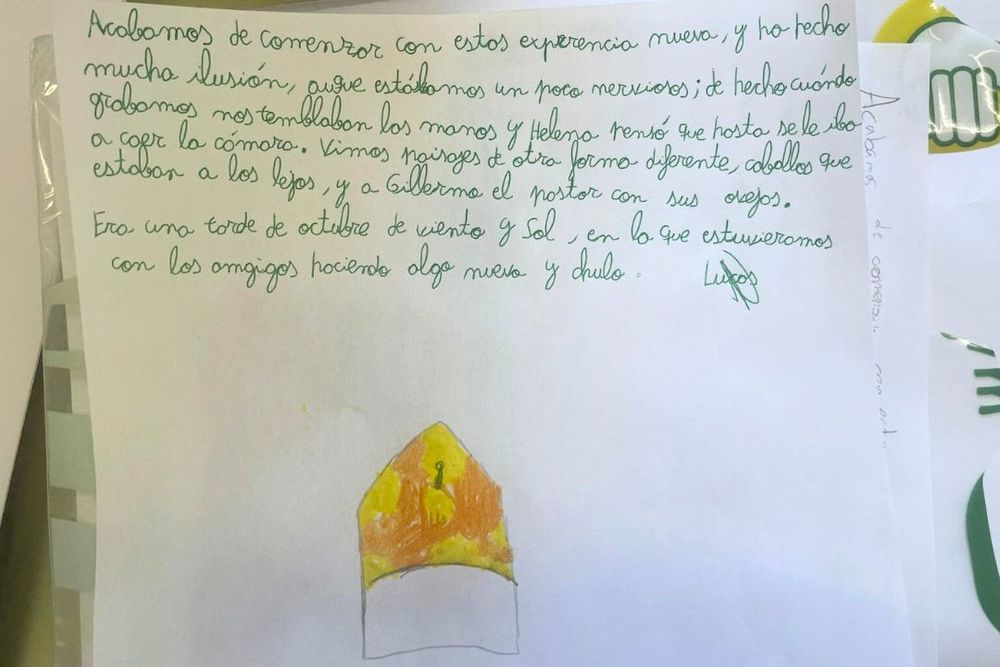 Acabamos de comenzar con estas experencia nueva, y ha hecho
mucha ilusión, auque estábamos un poco nerviosos; de hecho cuándo
grabamos nos temblaban las manos y Helena pensó que hasta se le iba
a caer la cámara. Vimos paisajes de otra forma diferente, caballos que
estaban a los lejos, y a Gillermo el pastor con sus ovejas.
Era una tarde de octubre de viento y Sol, en la que estuvieramos
con los amgigos haciendo algo nuevo y chulo.
Lucas
Acabamos de comenzar